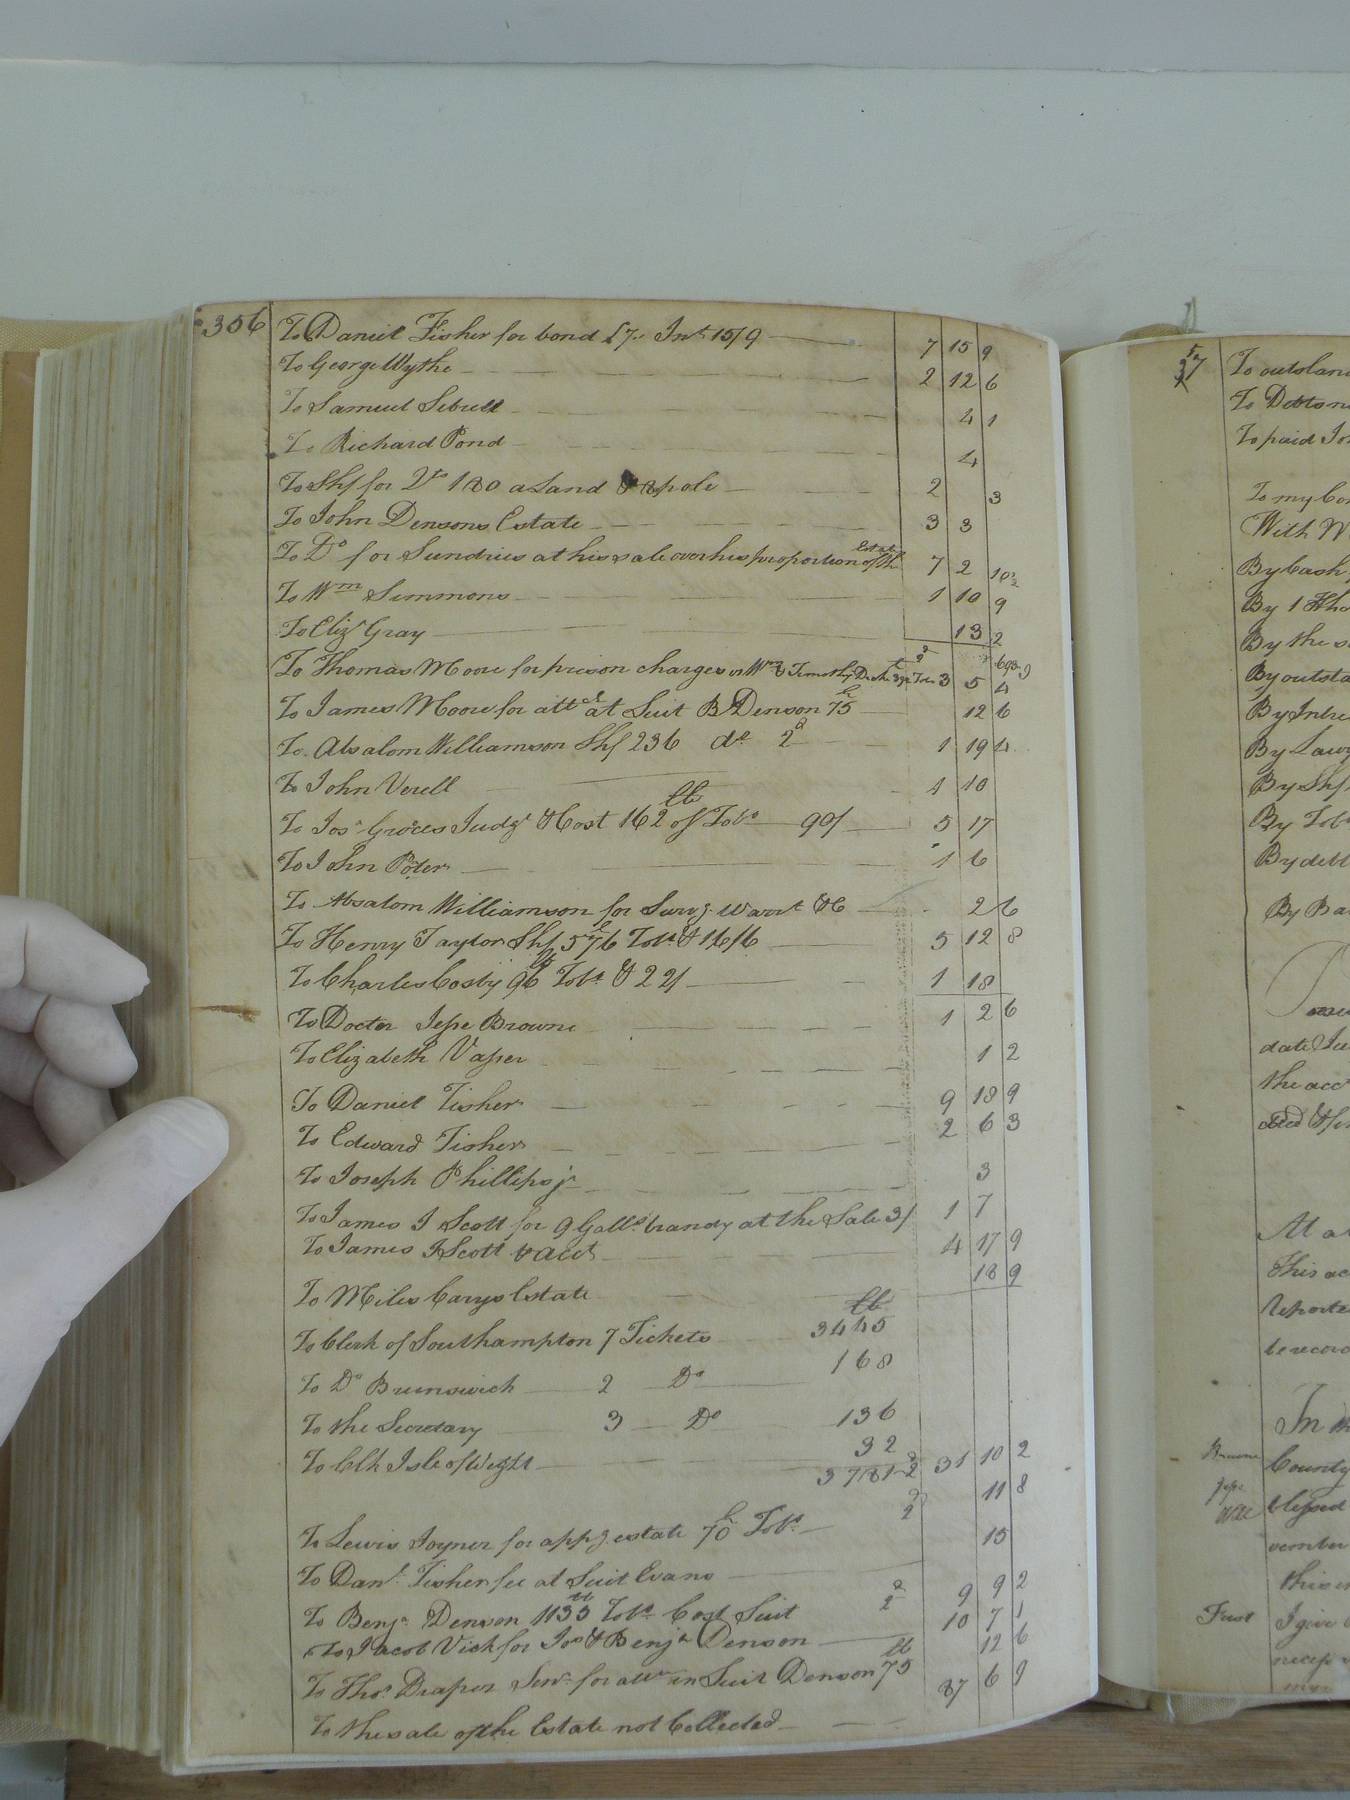 356
To Daniel Fisher for bond £7.. Int 15/9 7 15 9
To George Wythe 2 12 6
To Samuel Sebrell 4 1
To Richard Pond 4
To Shf for 180 a Land & 8 pole 2 3
To John Densons Estate 3 3
To Do for Sundries at his sale over his proportion of the Estate 7 2 10½
To Wm Simmons 1 10 9
To Eliza Gray 13 2
To Thomas Moore for prison charges 3 5 4
To James Moore for attd at Suit B Denson 75 12 6
To Absalom Williamson Shf 236 do 2d 1 19 4
To John Verell 1 10
To Jos Graves Judgt & Cost 162 lb of Tobo 90/ 5 17
To John Peter 1 6
To Absalom Williamson for Survg Warrt &C 2 6
To Henry Taylor Shf 576 Tobo & 16/6 5 12 8
To Charles Cosby 96 lb Tobo & 22/ 1 18
To Doctor Jesse Browne 1 2 6
To Elizabeth Vasser 1 2
To Daniel Fisher 9 18 9
To Edward Fisher 2 6 3
To Joseph Phillips jr 3
To James J Scott for 9 Galls brandy at the Sale 3/ 1 7
To James J Scott 4 17 9
To Miles Carys Estate 18 9
To Clerk of Southampton 7 Tickets lb 3445
To Do Brunswick 2 Do 168
To the Secretary 3 Do 136
To Clk Isle of Wight 32
3781 2d 31 10 2
To Lewis Joyner for appg estate 70 Tobo 2d 11 8
To Danl Fisher fee at Suit Evans 15
To Benja Denson 1133 lb Tobo Cost Suit 2d 9 9 2
To Jacob Vick for Jos & Benja Denson 10 7 1
To Thos Draper for in Suit Denson 75 lb 12 6
To the sale of the Estate not Collected 87 6 9
57
To outstan
To Debts
To paid
To my
With
By Cash
By 1
By the s
By outsta
By Intre
By
By Shf
By Tob
By debt
By Ba
date
the acc
At a
This ac
Reporte
be recor
In
Browne County
Jesse blessed
vember
this
First I give